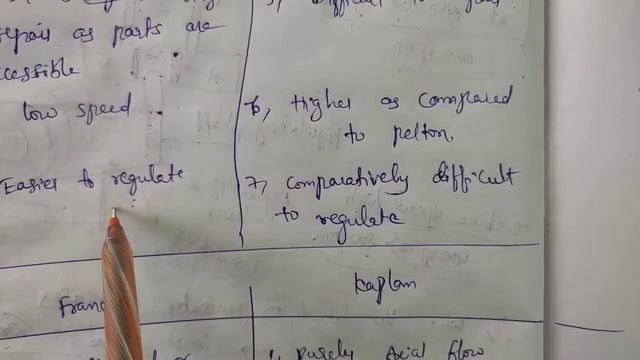 repair as parts are
ccessible
low speed
Easier to regulate
6, Higher as compared
to pelton
7, comparatively difficult
to regulate
Fran
kaplan
1, purely Axial flow